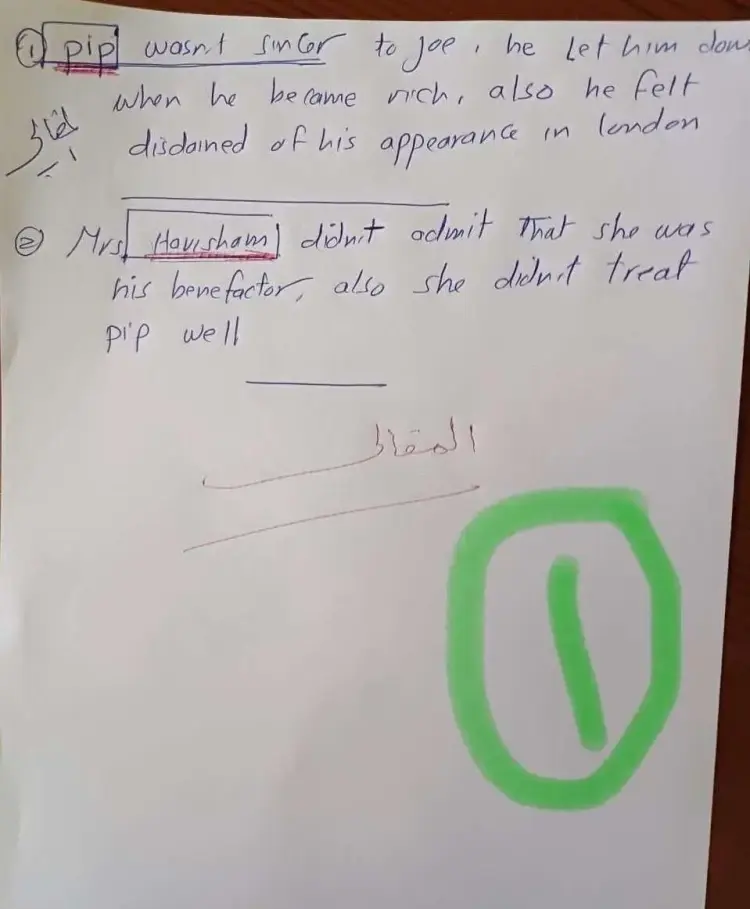 ① pip wasn't sincer to joe, he let him down
when he became rich, also he felt
disdained of his appearance in london
② Mrs Havisham didn't admit that she was
his benefactor, also she didn't treat
pip well
المقال
1